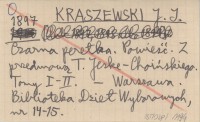 O
1897 KRASZEWSKI J. I.
Czarna perełka. Powieść. Z
przedmową T. Jeske-Choińskiego.
Tomy I-II. — Warszawa
Biblioteka Dzieł Wyborowych,
nr 14-15.